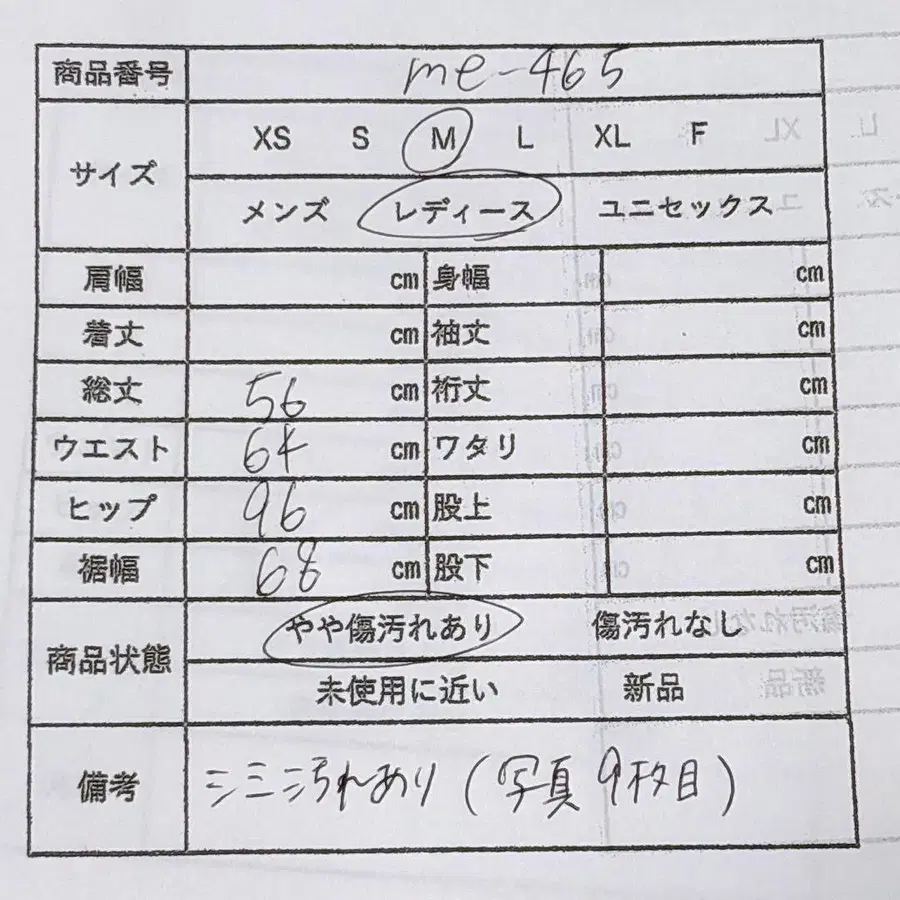 商品番号 me-465
サイズ XS S M L XL F
メンズ レディース ユニセックス
肩幅 cm 身幅 cm
着丈 cm 袖丈 cm
総丈 56 cm 裄丈 cm
ウエスト 64 cm ワタリ cm
ヒップ 96 cm 股上 cm
裾幅 68 cm 股下 cm
商品状態 やや傷汚れあり 傷汚れなし
未使用に近い 新品
備考 シミ汚れあり(写真9枚目)